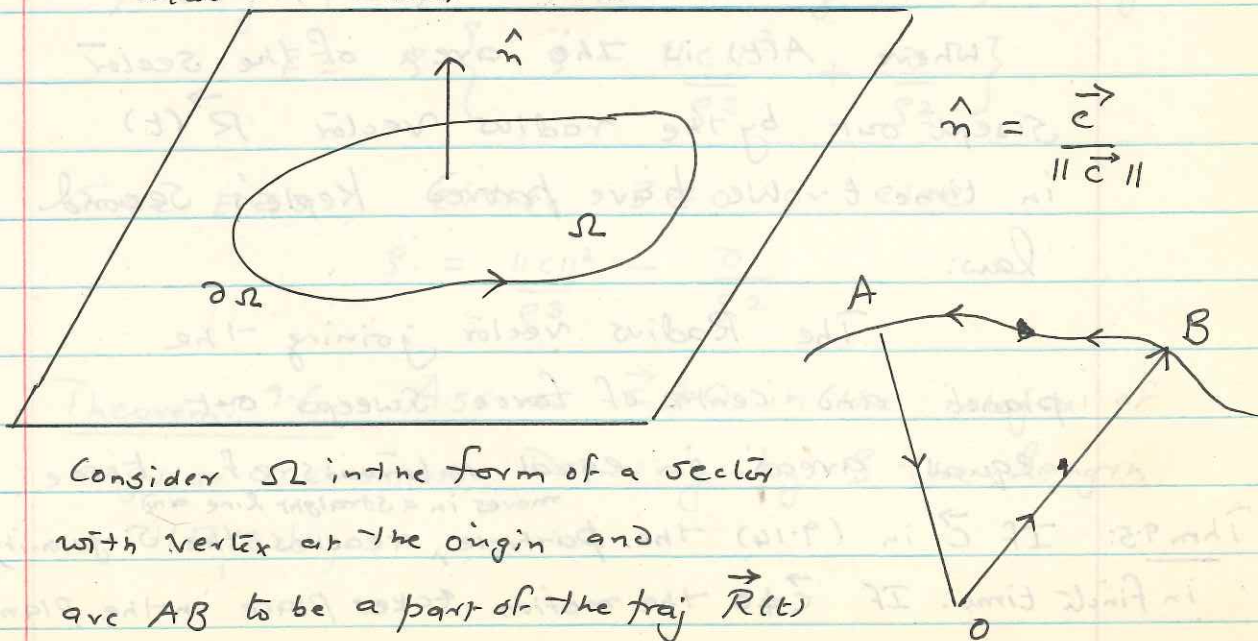 n̂
n̂ = c⃗ / ‖c⃗‖
Ω
∂Ω
A
B
Consider Ω in the form of a sector
with vertex at the origin and
arc AB to be a part of the traj R⃗(t)
O